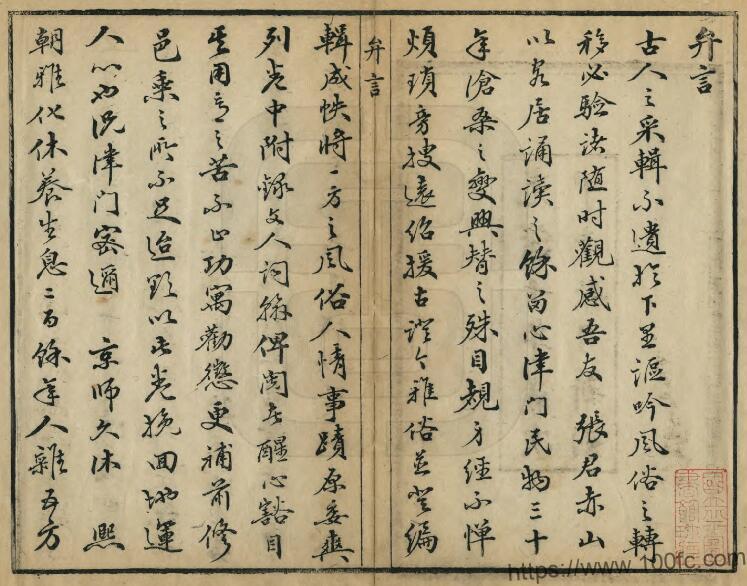 弁言
古人之采輯不遺於下里謳吟風俗之轉
移必驗諸随时觀感吾友 張君赤山
以客居誦讀之餘留心津門民物三十
年滄桑之變興替之殊目覩身經不惮
煩瑣旁搜遠紹援古證今雅俗並登編
弁言
輯成帙將一方之風俗人情事蹟原委爽
列卷中附錄文人詞翰俾閱者醒心豁目
其用意之苦不止功寓勸懲更補前修
邑乘之所不足迨欲以此卷挽回地運
人心也況津門密邇 京師久沐 熙
朝雅化休養生息二百餘年人雜五方
https://www.100fc.com